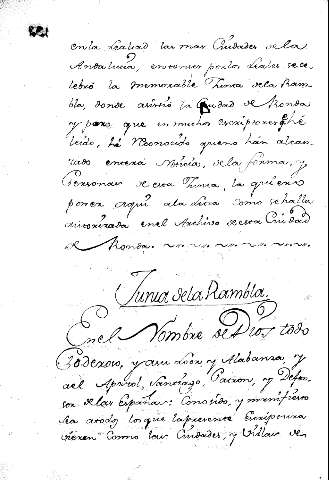 en la Lealtad las mas Ciudades de la
Andalucia, entonces por los Leales se ce
lebró la memorable Junta de la Ram
bla, donde asistió la Ciudad de Ronda
y pero que en muchos escriptores hé
leido, hé Reconocido que no han alcan
zado entera Noticia, de la forma, y
Personas de esta Junta, la quiero
poner aqui a la Letra como se halla
autorizada en el Archivo de esta Ciudad
de Ronda.
Junta de la Rambla.
En el Nombre de Dios todo
Poderoso, y a su Loor y Alabanza, y
del Apostol Santiago, Patron, y Defen
sor de las Españas: Conosido, y manifiesto
sea a todos los que la presente escriptura
vieren como las Ciudades, y Villas de